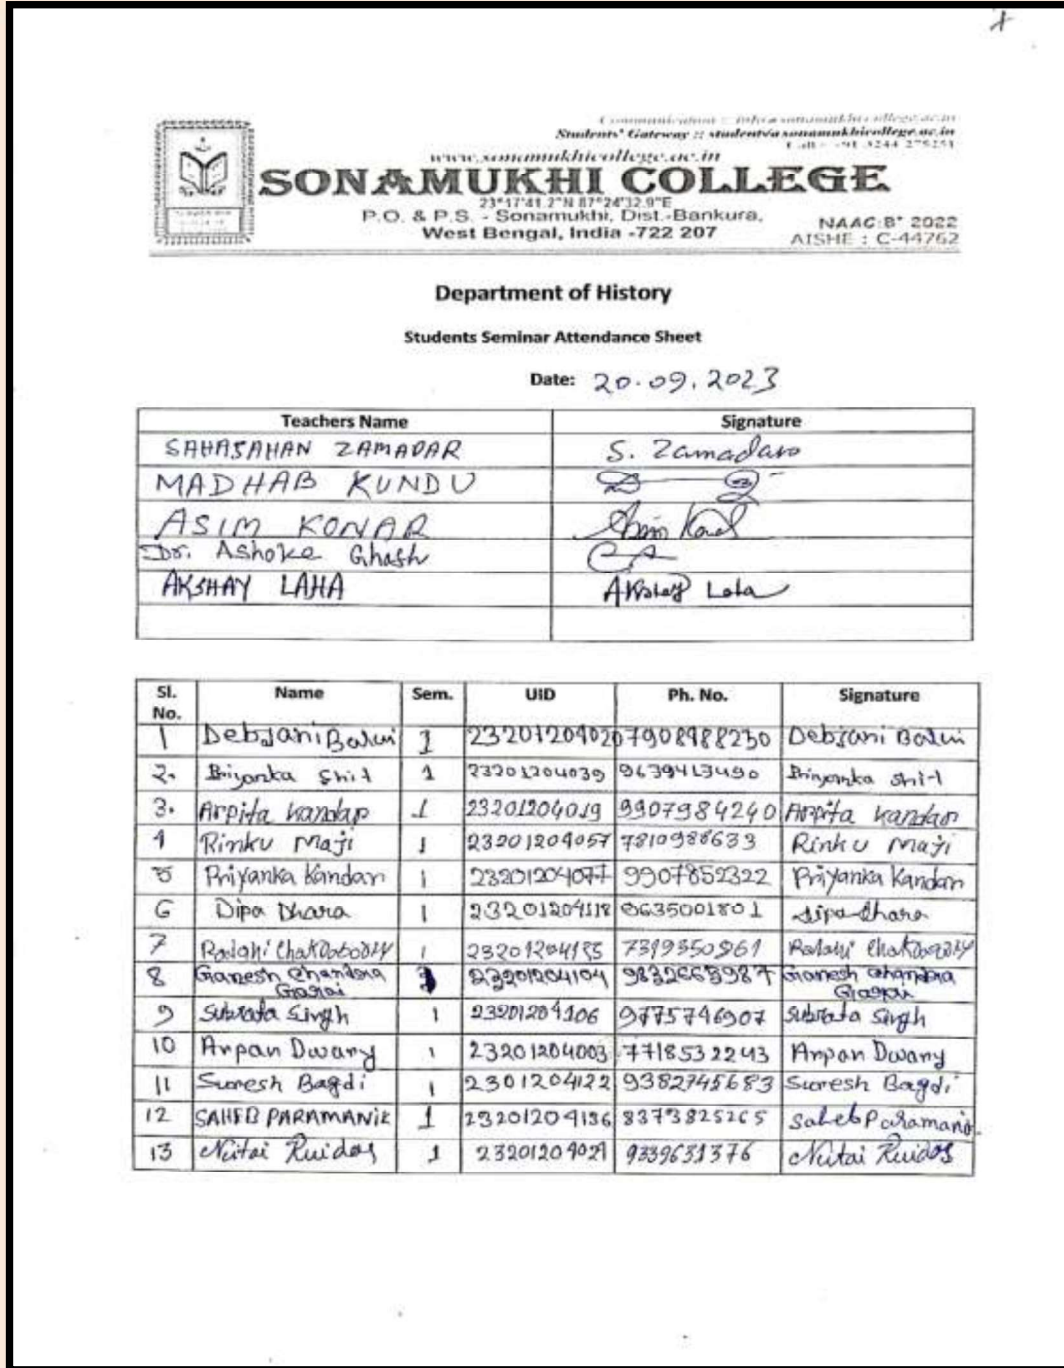 Students' Gateway :: student@sonamukhicollege.ac.in
www.sonamukhicollege.ac.in
SONAMUKHI COLLEGE
23°17'41.2"N 87°24'32.9"E
P.O. & P.S. - Sonamukhi, Dist.-Bankura,
West Bengal, India -722 207
NAAC:B+ 2022
AISHE : C-44762
Department of History
Students Seminar Attendance Sheet
Date: 20.09.2023
Teachers Name Signature
SAHASAHAN ZAMADAR S. Zamadar
MADHAB KUNDU
ASIM KONAR
Dr. Ashoke Ghosh
AKSHAY LAHA Akshay Laha
Sl. No. Name Sem. UID Ph. No. Signature
1 Debjani Bauri 1 23201204020 7908988250 Debjani Bauri
2. Priyanka Shit 1 23201204039 9639413490 Priyanka Shit
3. Arpita Kandar 1 23201204019 9907984240 Arpita Kandar
4 Rinku Maji 1 23201204057 7810988633 Rinku Maji
5 Priyanka Kandar 1 23201204077 9907852322 Priyanka Kandar
6 Dipa Dhara 1 23201204118 8635001801 Dipa Dhara
7 1 7319350961
8 Ganesh Chandra Garai 23201204104 9832663987 Ganesh Chandra Garai
9 Subrata Singh 1 23201204106 9775746907 Subrata Singh
10 Arpan Dwary 1 23201204003 7718532243 Arpan Dwary
11 Suresh Bagdi 1 2301204122 9382745683 Suresh Bagdi
12 SAHEB PARAMANIK 1 23201204136 8373825265 Saheb Paramanik
13 Nitai Ruidas 1 23201204029 9339631376 Nitai Ruidas